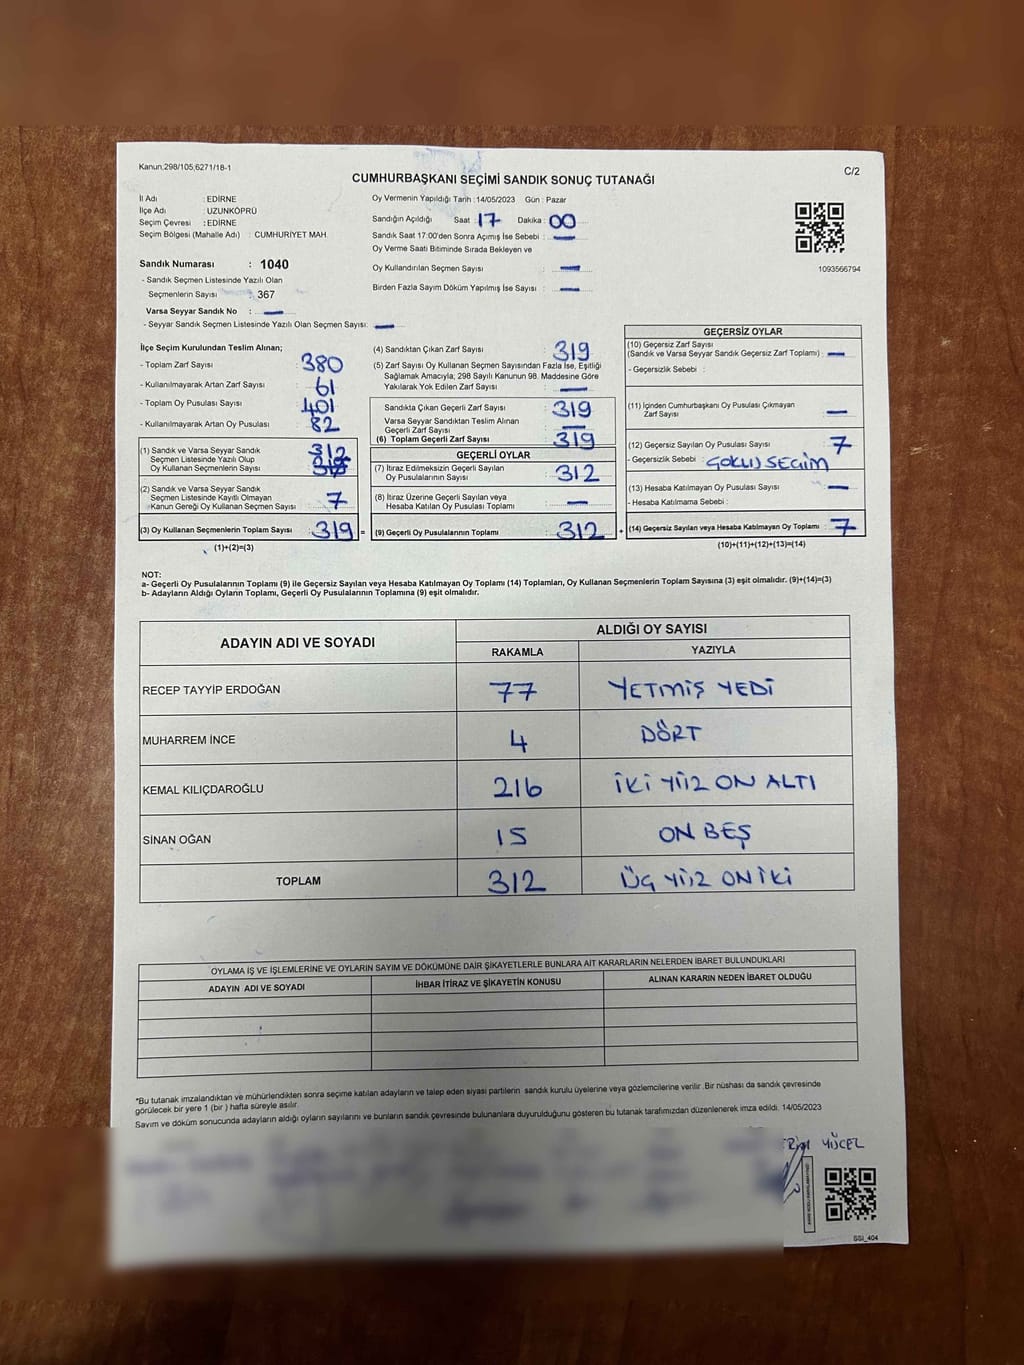 Kanun.298/105,6271/18-1
C/2
CUMHURBAŞKANI SEÇİMİ SANDIK SONUÇ TUTANAĞI
İl Adı : EDİRNE
İlçe Adı : UZUNKÖPRÜ
Seçim Çevresi : EDİRNE
Seçim Bölgesi (Mahalle Adı) : CUMHURİYET MAH.
Oy Vermenin Yapıldığı Tarih : 14/05/2023 Gün : Pazar
Sandığın Açıldığı Saat : 17 Dakika : 00
Sandık Saat 17:00'den Sonra Açımış İse Sebebi : —
Oy Verme Saati Bitiminde Sırada Bekleyen ve
Oy Kullandırılan Seçmen Sayısı : —
Birden Fazla Sayım Döküm Yapılmış İse Sayısı : —
1093566794
Sandık Numarası : 1040
- Sandık Seçmen Listesinde Yazılı Olan
Seçmenlerin Sayısı : 367
Varsa Seyyar Sandık No : —
- Seyyar Sandık Seçmen Listesinde Yazılı Olan Seçmen Sayısı: —
İlçe Seçim Kurulundan Teslim Alınan;
- Toplam Zarf Sayısı : 380
- Kullanılmayarak Artan Zarf Sayısı : 61
- Toplam Oy Pusulası Sayısı : 401
- Kullanılmayarak Artan Oy Pusulası : 82
(1) Sandık ve Varsa Seyyar Sandık
Seçmen Listesinde Yazılı Olup
Oy Kullanan Seçmenlerin Sayısı : 312
(2) Sandık ve Varsa Seyyar Sandık
Seçmen Listesinde Kayıtlı Olmayan
Kanun Gereği Oy Kullanan Seçmen Sayısı : 7
(3) Oy Kullanan Seçmenlerin Toplam Sayısı : 319 =
(1)+(2)=(3)
(4) Sandıktan Çıkan Zarf Sayısı : 319
(5) Zarf Sayısı Oy Kullanan Seçmen Sayısından Fazla İse, Eşitliği
Sağlamak Amacıyla; 298 Sayılı Kanunun 98. Maddesine Göre
Yakılarak Yok Edilen Zarf Sayısı : —
Sandıkta Çıkan Geçerli Zarf Sayısı : 319
Varsa Seyyar Sandıktan Teslim Alınan
Geçerli Zarf Sayısı : —
(6) Toplam Geçerli Zarf Sayısı : 319
GEÇERLİ OYLAR
(7) İtiraz Edilmeksizin Geçerli Sayılan
Oy Pusulasının Sayısı : 312
(8) İtiraz Üzerine Geçerli Sayılan veya
Hesaba Katılan Oy Pusulası Toplamı : —
(9) Geçerli Oy Pusulalarının Toplamı : 312 +
GEÇERSİZ OYLAR
(10) Geçersiz Zarf Sayısı
(Sandık ve Varsa Seyyar Sandık Geçersiz Zarf Toplamı) : —
- Geçersizlik Sebebi :
(11) İçinden Cumhurbaşkanı Oy Pusulası Çıkmayan
Zarf Sayısı : —
(12) Geçersiz Sayılan Oy Pusulası Sayısı : 7
- Geçersizlik Sebebi : ÇOKLU SEÇİM
(13) Hesaba Katılmayan Oy Pusulası Sayısı : —
- Hesaba Katılmama Sebebi :
(14) Geçersiz Sayılan veya Hesaba Katılmayan Oy Toplamı : 7
(10)+(11)+(12)+(13)=(14)
NOT:
a- Geçerli Oy Pusulalarının Toplamı (9) ile Geçersiz Sayılan veya Hesaba Katılmayan Oy Toplamı (14) Toplamları, Oy Kullanan Seçmenlerin Toplam Sayısına (3) eşit olmalıdır. (9)+(14)=(3)
b- Adayların Aldığı Oyların Toplamı, Geçerli Oy Pusulalarının Toplamına (9) eşit olmalıdır.
ADAYIN ADI VE SOYADI ALDIĞI OY SAYISI
RAKAMLA YAZIYLA
RECEP TAYYİP ERDOĞAN 77 YETMİŞ YEDİ
MUHARREM İNCE 4 DÖRT
KEMAL KILIÇDAROĞLU 216 İKİ YÜZ ON ALTI
SİNAN OĞAN 15 ON BEŞ
TOPLAM 312 ÜÇ YÜZ ON İKİ
OYLAMA İŞ VE İŞLEMLERİNE VE OYLARIN SAYIM VE DÖKÜMÜNE DAİR ŞİKAYETLERLE BUNLARA AİT KARARLARIN NELERDEN İBARET BULUNDUKLARI
ADAYIN ADI VE SOYADI İHBAR İTİRAZ VE ŞİKAYETİN KONUSU ALINAN KARARIN NEDEN İBARET OLDUĞU
*Bu tutanak imzalandıktan ve mühürlendikten sonra seçime katılan adayların ve talep eden siyasi partilerin sandık kurulu üyelerine veya gözlemcilerine verilir. Bir nüshası da sandık çevresinde
görülecek bir yere 1 (bir ) hafta süreyle asılır.
Sayım ve döküm sonucunda adayların aldığı oyların sayılarını ve bunların sandık çevresinde bulunanlara duyurulduğunu gösteren bu tutanak tarafımızdan düzenlenerek imza edildi. 14/05/2023
YÜCEL
SSI_404